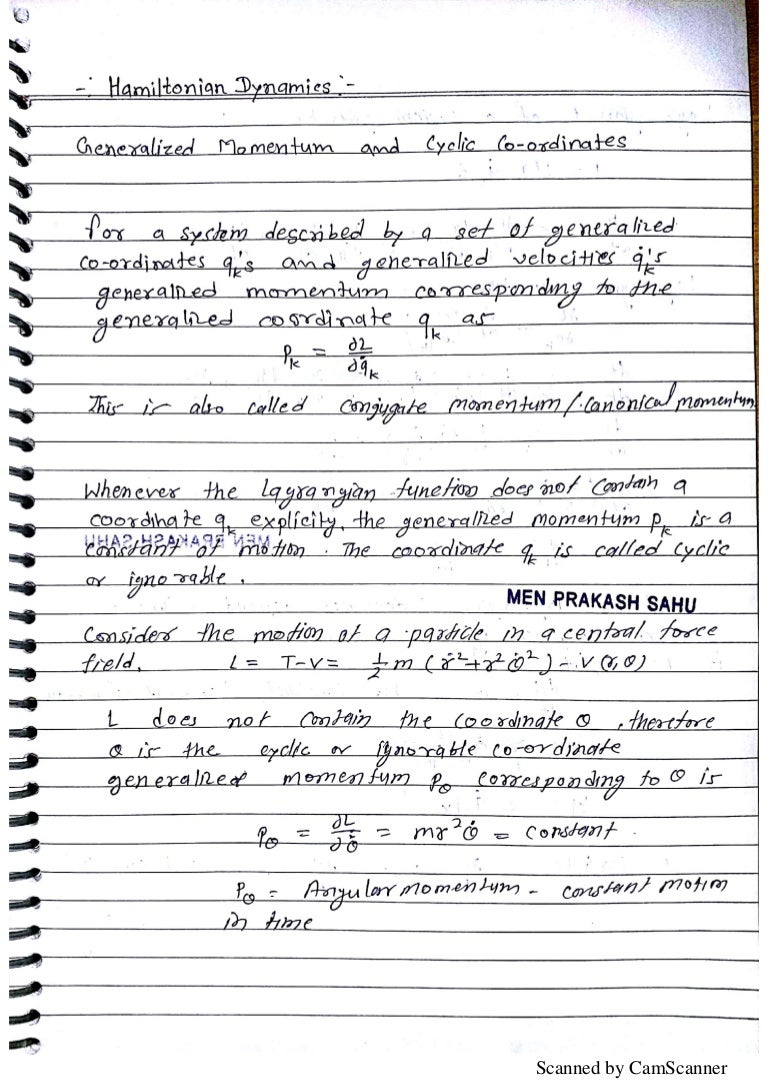 -: Hamiltonian Dynamics :-
Generalized Momentum and Cyclic Co-ordinates
for a system described by a set of generalized
co-ordinates qₖ's and generalized velocities q̇ₖ's
generalized momentum corresponding to the
generalized coordinate qₖ as
Pₖ = ∂L/∂q̇ₖ
This is also called conjugate momentum / canonical momentum
Whenever the Lagrangian function does not contain a
coordinate qₖ explicity, the generalized momentum Pₖ is a
constant of motion. The coordinate qₖ is called cyclic
or ignorable.
MEN PRAKASH SAHU
Consider the motion of a particle in a central force
field. L = T-V = 1/2 m (ṙ²+r²θ̇²) - V(r,θ)
L does not contain the coordinate θ, therefore
θ is the cyclic or ignorable co-ordinate
generalized momentum Pθ corresponding to θ is
Pθ = ∂L/∂θ̇ = mr²θ̇ = constant.
Pθ = Angular momentum - constant motion
in time
Scanned by CamScanner